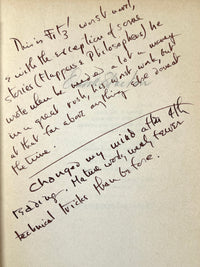 This is Fitz's worst work,
& with the exception of some
stories (Flappers & Philosophers) he
wrote when he needed a lot of money
in a great rush, his worst work, but
at that far above anything else around
the time.
Changed my mind after 4th
reading. Mature work, many fewer
technical tricks than before.